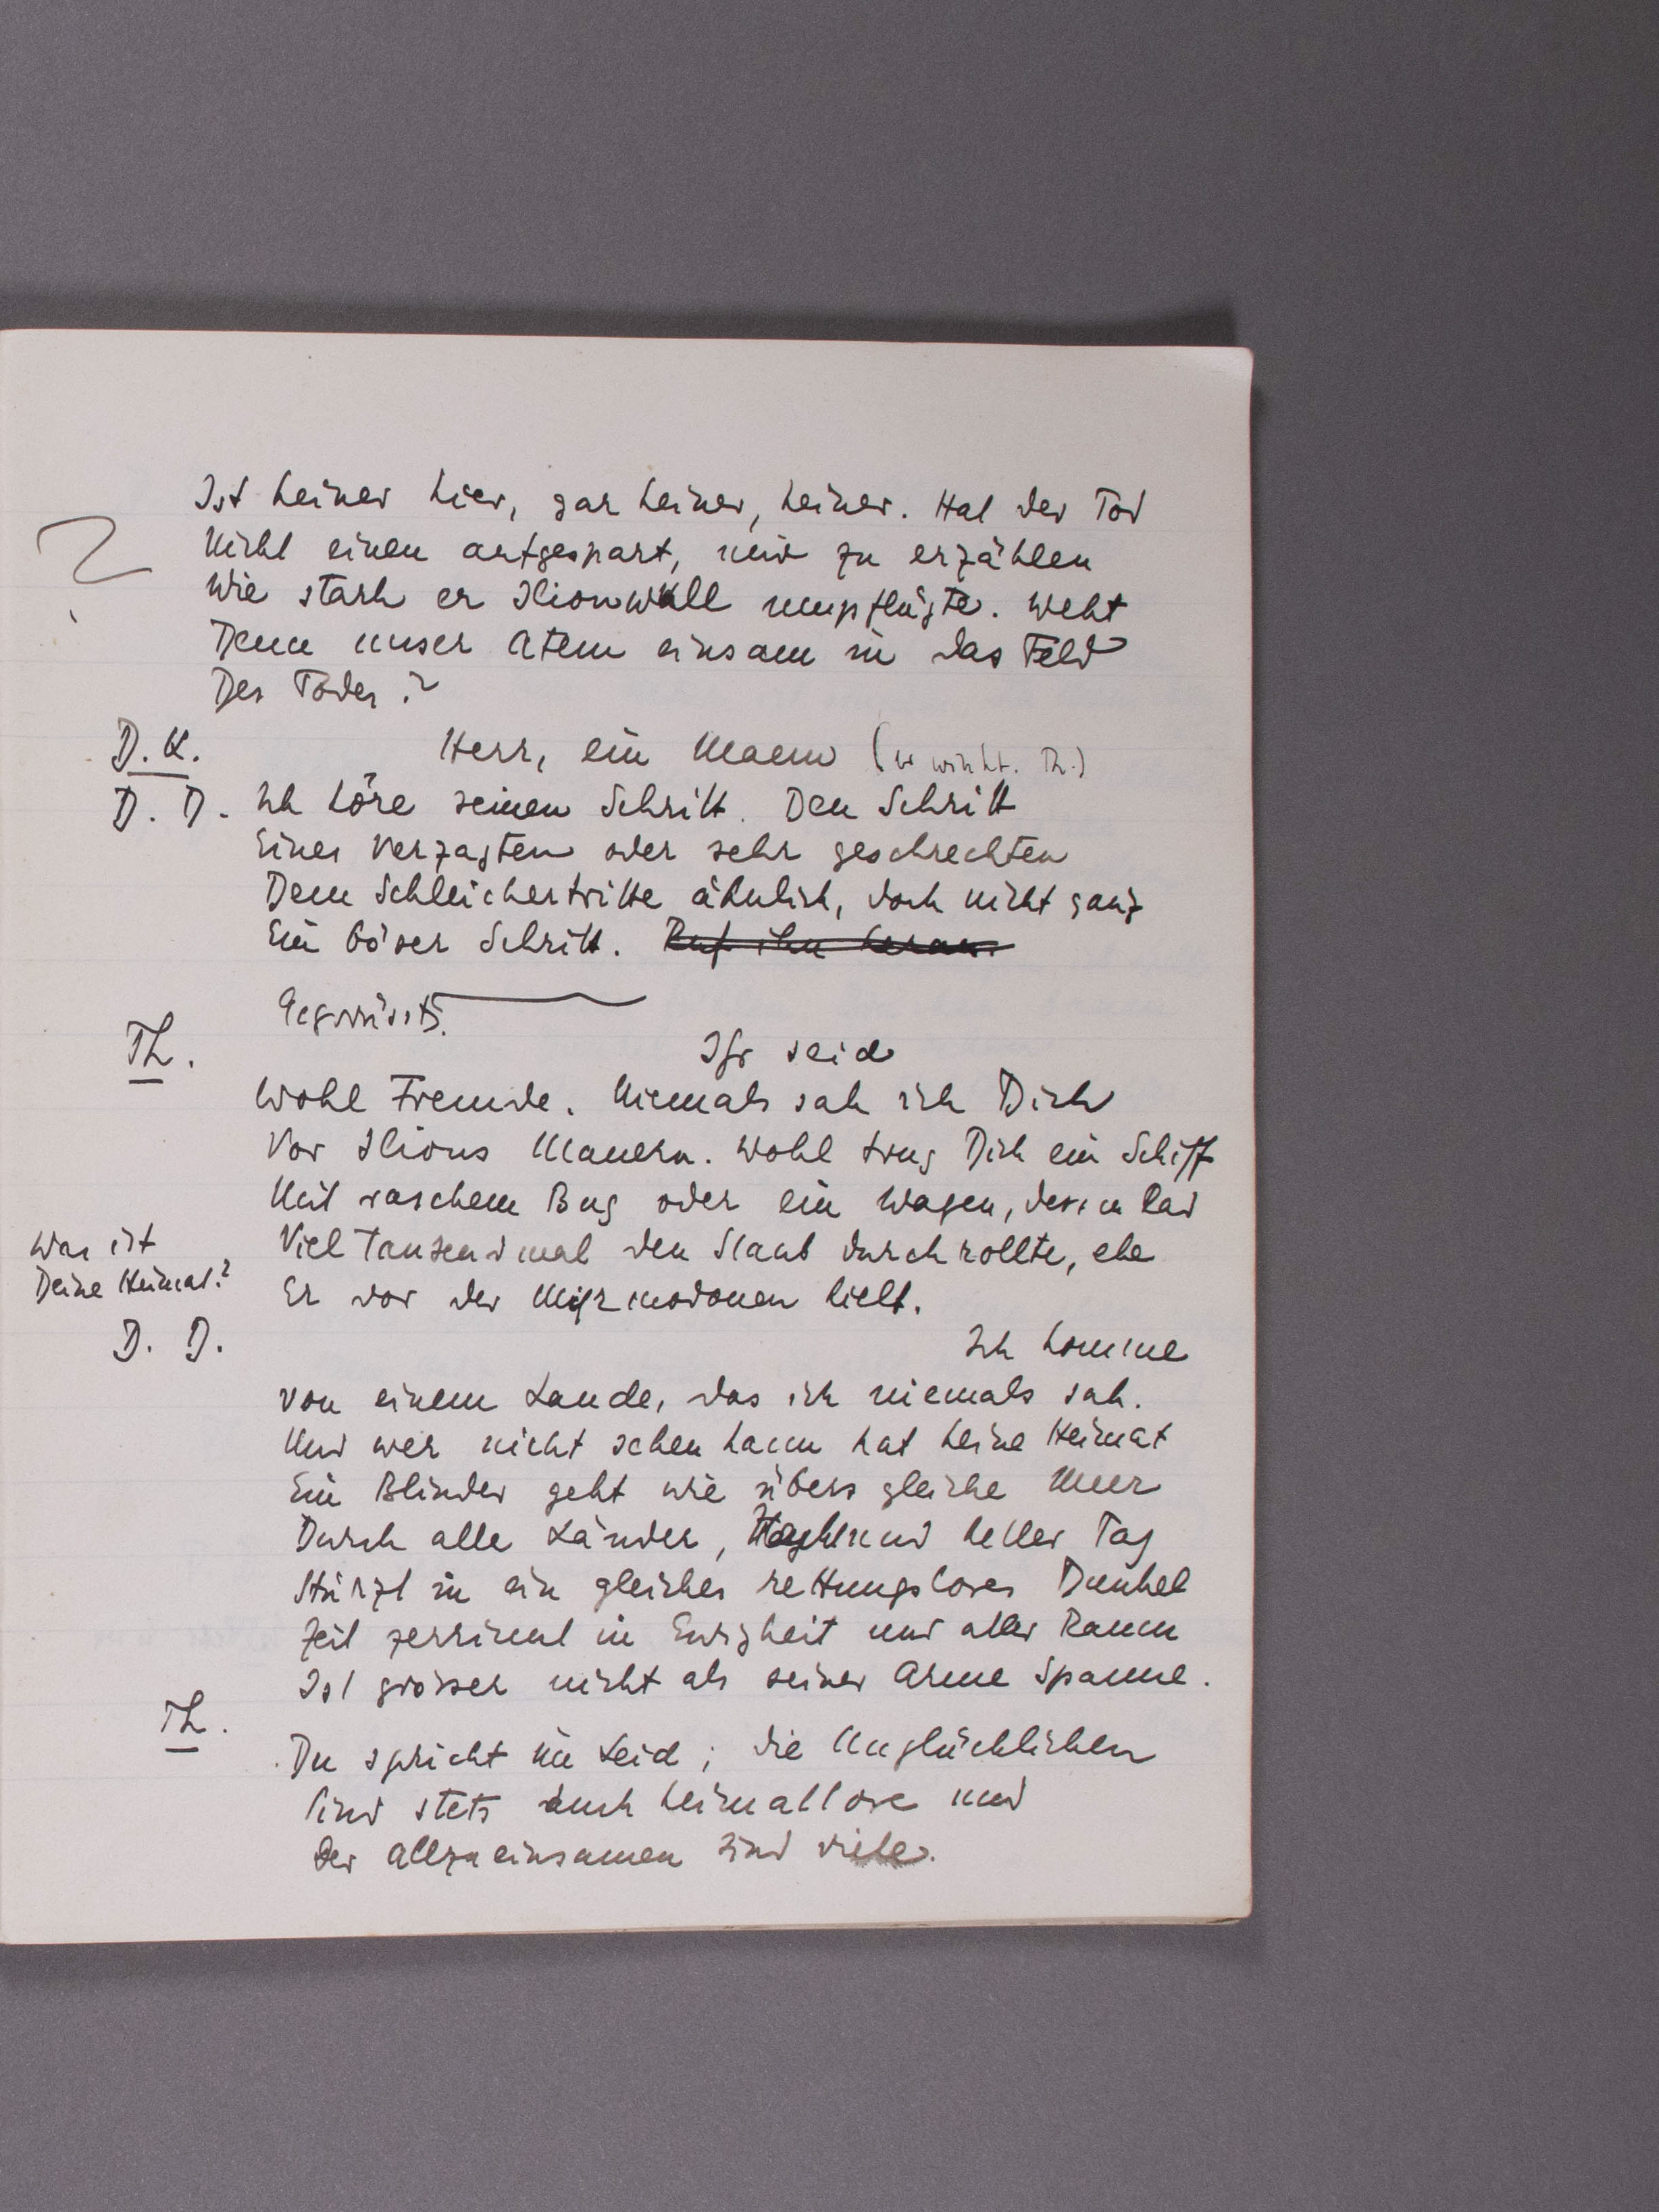 Ist keiner hier, gar keiner, keiner. Hat der Tod
Nicht einen aufgespart, mir zu erzählen
Wie stark er Ilionwall umpflügte. Weht
Denn unser Atem einsam in das Feld
Des Todes?
?
D. K. Herr, ein Mann (er winkt. Th.)
D. D. Ich höre seinen Schritt. Den Schritt
Eines Verzagten oder sehr geschreckten
Dem Schleichertritte ähnlich, doch nicht ganz
Ein böser Schritt. Ruf ihn heran.
Gegrüsst.
Th. Ihr seid
Wohl Fremde. Niemals sah ich Dich
Vor Ilions Mauern. Wohl trug Dich ein Schiff
Mit raschem Bug oder ein Wagen, dessen Rad
Viel Tausendmal den Staub durchrollte, ehe
Er vor der Myrmodonen hielt.
Was ist
Deine Heimat?
D. D. Ich komme
von einem Lande, das ich niemals sah.
Und wer nicht sehen kann hat keine Heimat
Ein Blinder geht wie übers gleiche Meer
Durch alle Länder, Nacht und heller Tag
Stürzt in ein gleiches rettungsloses Dunkel
Zeit zerrinnt in Ewigkeit und aller Raum
Ist grösser nicht als seiner Arme Spanne.
Th. Du spricht im Leid; die Unglücklichen
Sind stets auch heimatlose und
Der allzueinsamen sind viele.